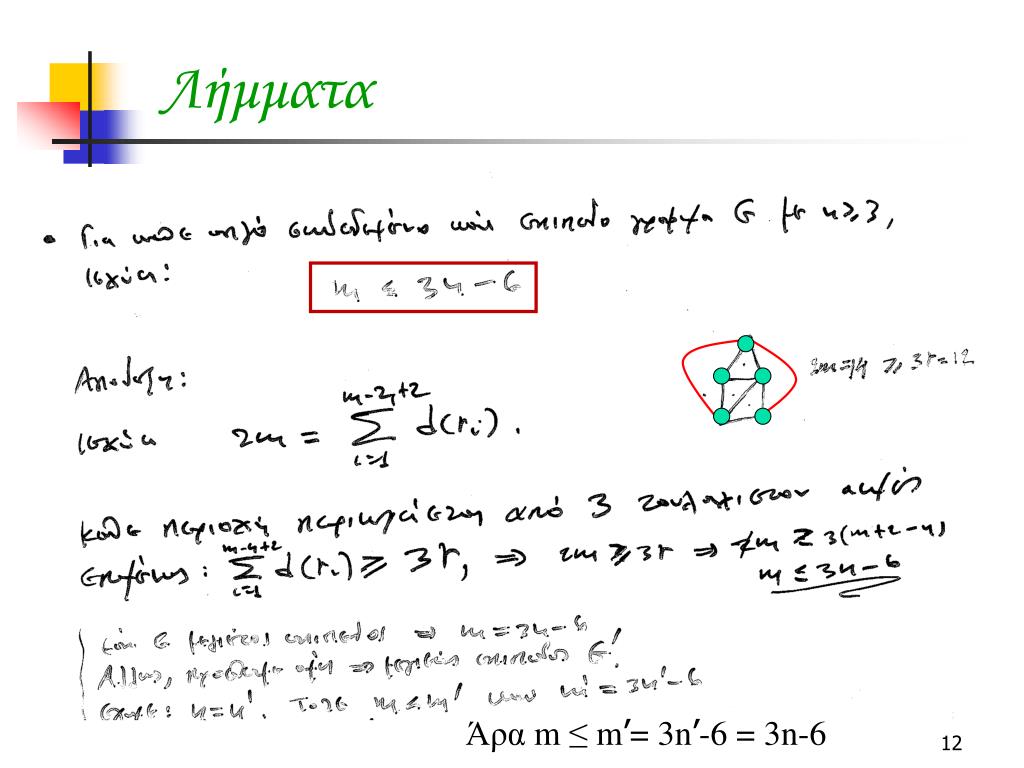 Λήμματα
• Για κάθε απλό συνδεδεμένο και επίπεδο γράφημα G με n≥3,
ισχύει:
m ≤ 3n-6
Απόδειξη:
2m=14 ≥ 3r=12
ισχύει 2m = ∑_{i=1}^{m-n+2} d(r_i).
κάθε περιοχή περικλείεται από 3 τουλάχιστον ακμές
Επομένως: ∑_{i=1}^{m-n+2} d(r_i) ≥ 3r, ⇒ 2m ≥ 3r ⇒ 2m ≥ 3(m+2-n)
m ≤ 3n-6
Εάν G μεγίστος επίπεδος ⇒ m=3n-6
Αλλιώς, προσθέτουμε ακμή ⇒ μεγίστος επίπεδος G'
έχουμε: n=n'. Τότε m≤m' m'=3n'-6
Άρα m ≤ m′= 3n′-6 = 3n-6
12